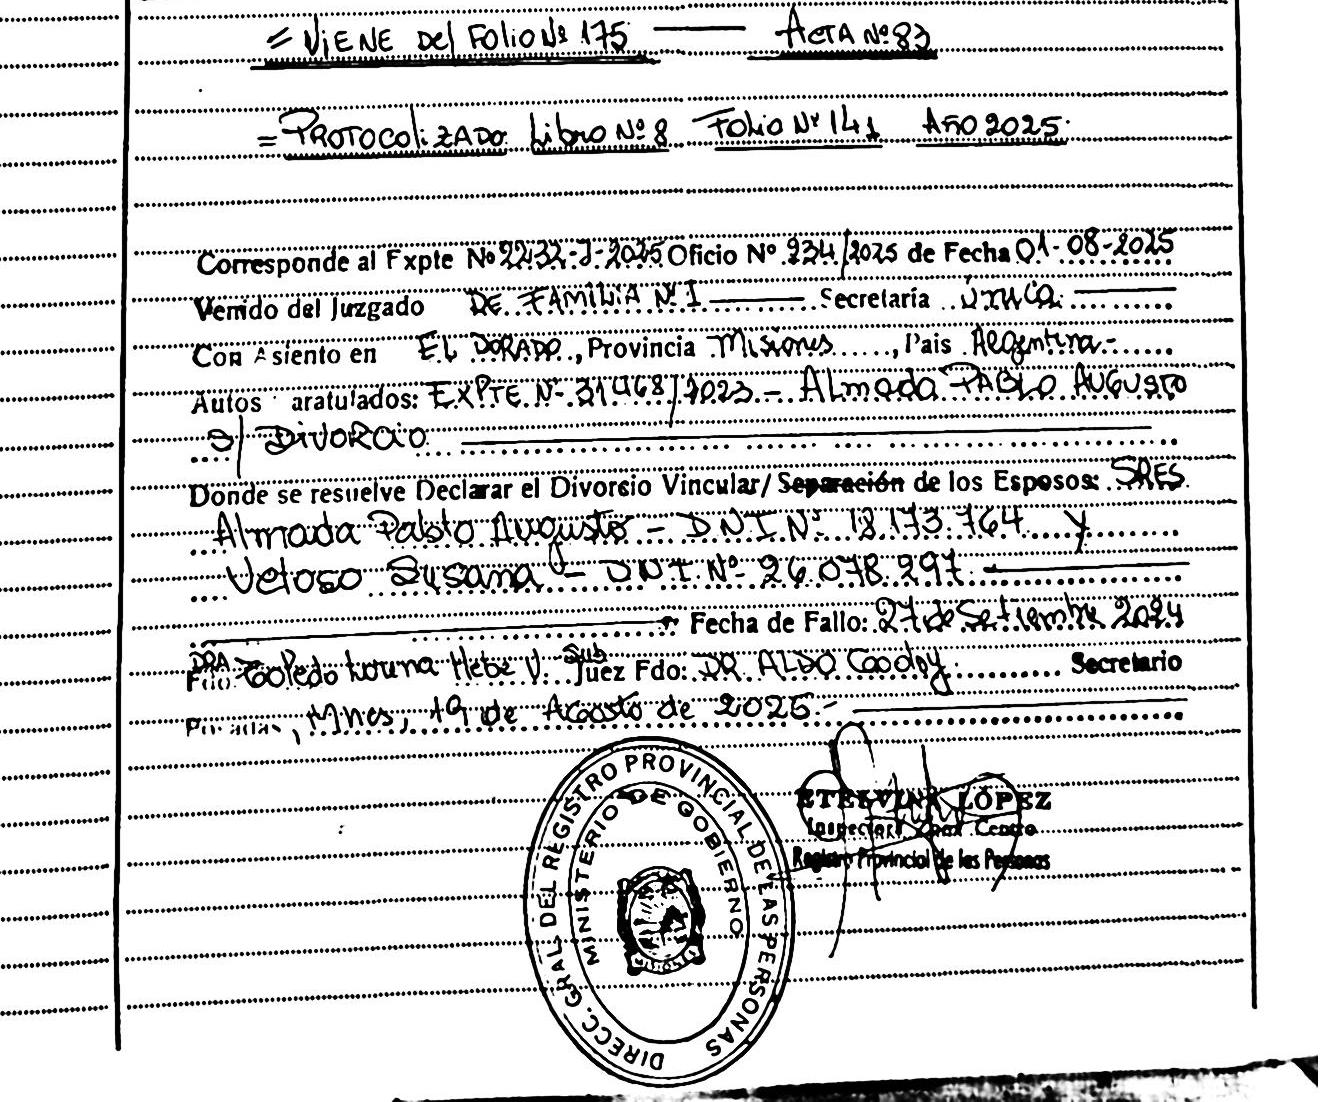 = ViENE Del Folio Nº 175 — ActA Nº 83
= PROTOCOLiZADO Libro Nº 8 Folio Nº 141 Año 2025.
Corresponde al Expte Nº 2232-J-2025 Oficio Nº 934/2025 de Fecha 01-08-2025
Venido del Juzgado DE FAMiLiA Nº 1 — Secretaría única
Con Asiento en EL DORADO, Provincia Misiones, Pais Argentina.-
Autos aratulados: EXPTE Nº 31468/2023 - Almada PABLO AUGUSTO
S/ DIVORCIO
Donde se resuelve Declarar el Divorsio Vincular/ Separación de los Esposos: SRES
Almada Pablo Augusto - DNI Nº 18.173.764 y
Veloso Susana - DNI Nº 26.078.297
Fecha de Fallo: 27 de Setiembre 2024
DRA
Fdo: Toledo Lorena Hebe V. Sub Juez Fdo: DR ALDO Godoy Secretario
Posadas, Mnes, 19 de Agosto de 2025.-
DIRECC. GRAL. DEL REGISTRO PROVINCIAL DE LAS PERSONAS
MINISTERIO DE GOBIERNO
MISIONES
ETELVINA LÓPEZ
Inspectora Zona Centro
Registro Provincial de las Personas